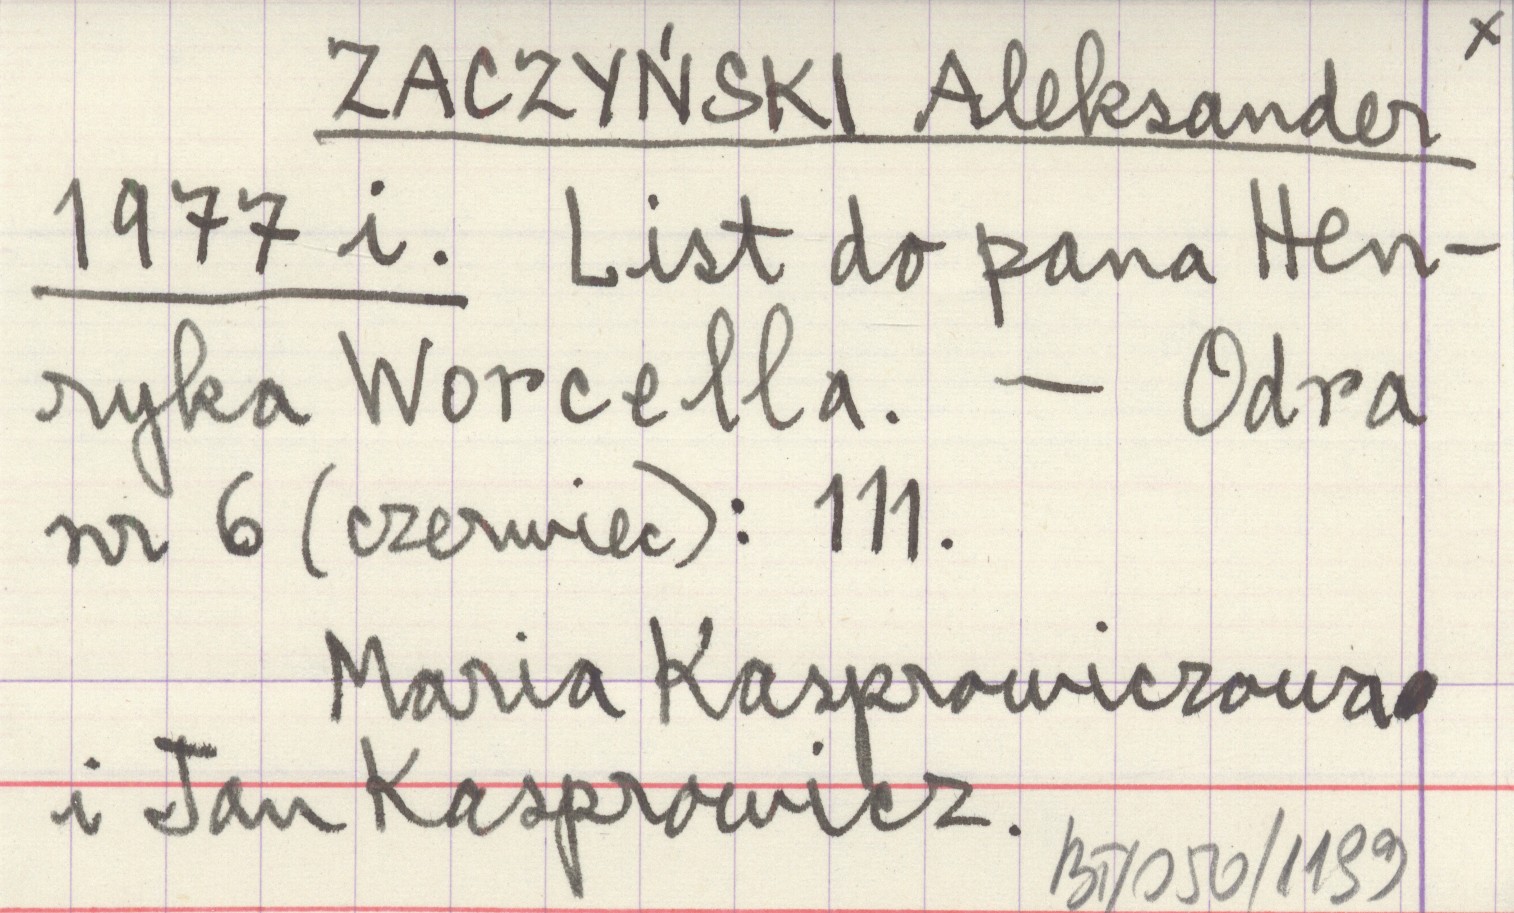 x
ZACZYŃSKI Aleksander
1977 i. List do pana Hen-
ryka Worcella. — Odra
nr 6 (czerwiec): 111.
Maria Kasprowiczowa
i Jan Kasprowicz.
BT/050/1199